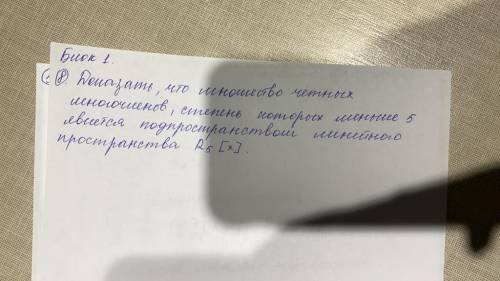 Блок 1.
8. Доказать, что множество четных
многочленов, степень которых меньше 5
явется подпространством линейного
пространства R₅ [x].